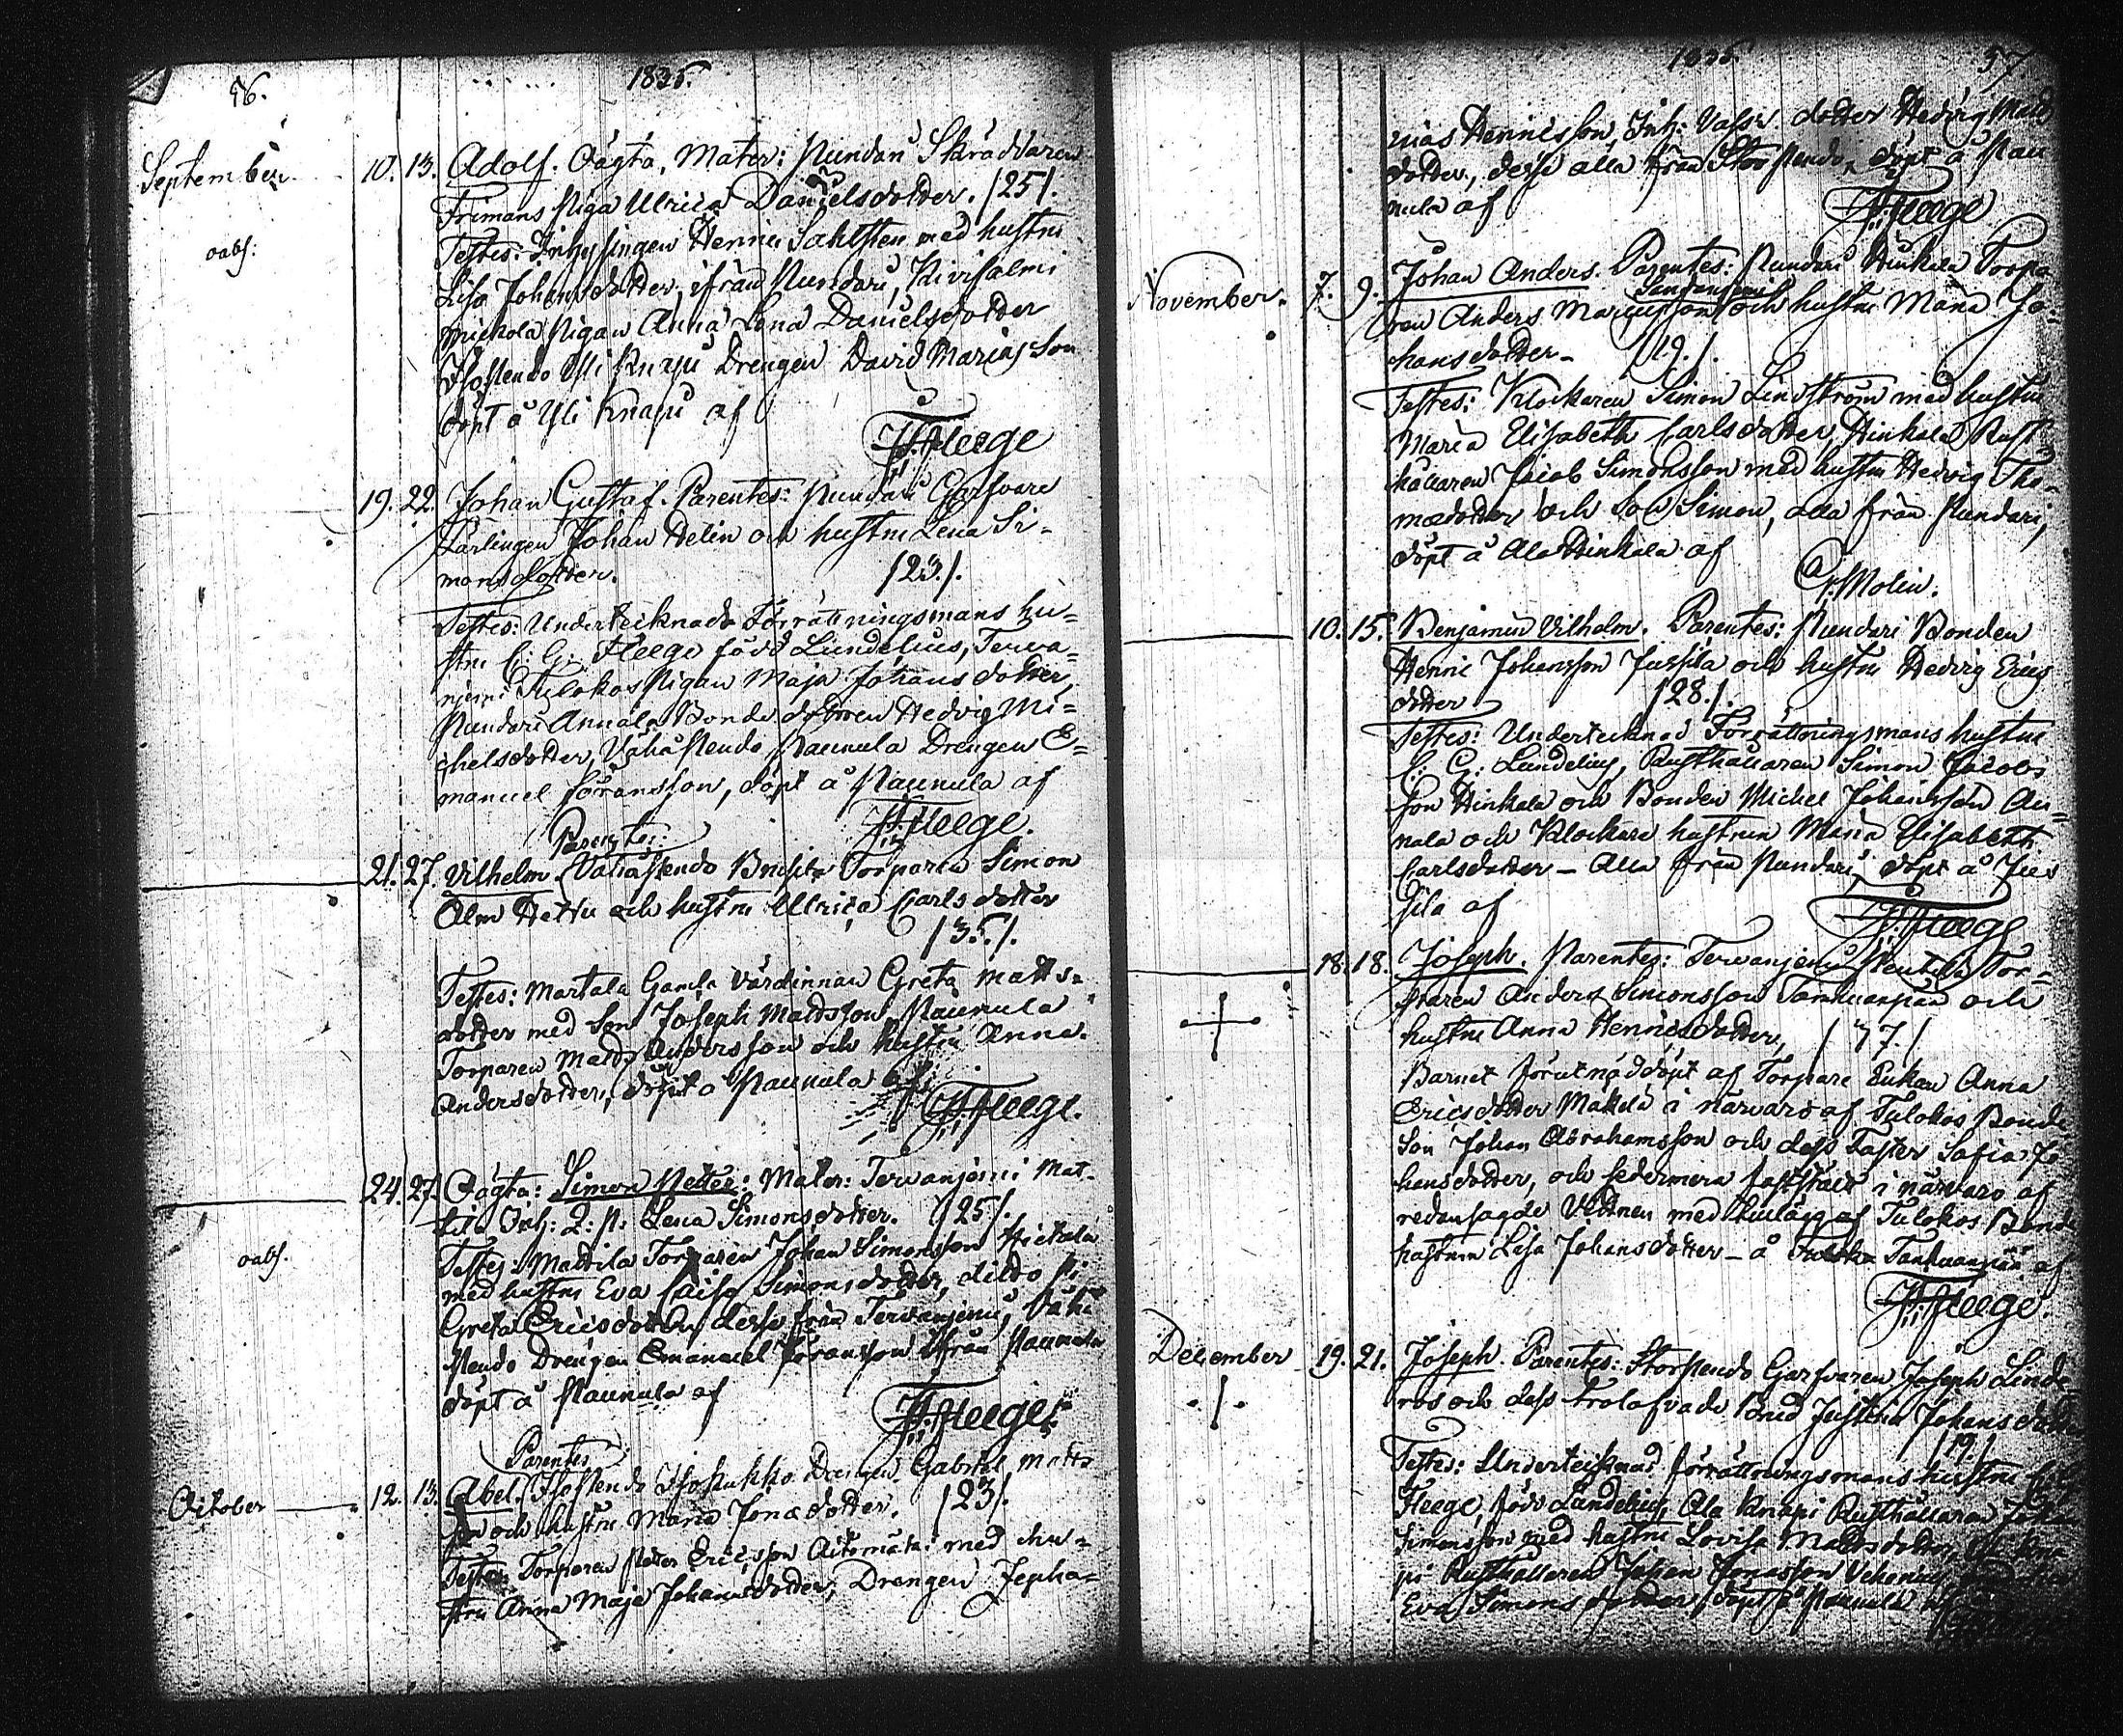 56.
1835.
September
10. 13. Adolf. Oägta, Mater: Nundari Skräddaren
Frimans Piga Ulrica Danielsdotter. /25/.
oabs:
Testes: Inhysingen Henric Sahlsten med hustru
Lisa Johansdotter, ifrån Nundari, Kivisalmi
Pigan Anna Lena Danielsdotter
Yli Knapi Drengen David Mariasson
döpt å Yli Knapi af
Fleege
19. 22. Johan Gustaf. Parentes: Nundari Garfvare
Lärlingen Johan Helin och hustru Lena Si-
monsdotter. /23/.
Testes: Undertecknads Förrättningsmans hu-
stru C: G: Fleege född Lundelius, Terva-
njemi Tulokas Pigan Maja Johansdotter,
Nundari Annala Bonde dottren Hedvig Mi-
chelsdotter, Vähä Pendo Naunula Drengen E-
manuel Göransson, döpt å Naunula af
Fleege.
Parentes:
21. 27. Vilhelm. Vähä Pendo Torparen Simon
Alm och hustru Ulrica Carlsdotter
/35/.
Testes: Martala Gamla Värdinnan Greta Matts-
dotter med Son Joseph Mattsson, Naunula
Torparen Matts Andersson och hustru Anna
Andersdotter, döpt å Naunula af
Fleege.
24. 27. Oägta: Simon Petter: Mater: Tervanjemi Mat-
tila Inh: Q: P: Lena Simonsdotter. /25/.
oabs.
Testes: Mattila Torparen Johan Simonsson Hietala
med hustru Eva Caisa Simonsdotter, ditto Pi
Greta Ericsdotter, desse från Tervanjemi, Vähä
Pendo Drengen Emanuel Göransson ifrån Naunula
döpt å Naunula af
Fleege.
Parentes
October 12. 13. Abel. Drengen Gabriel Matts
son och hustru Maria Jonædotter. /23/.
Testes: Torparen Petter Ericsson med hu-
stru Anna Maja Johansdotter, Drengen Zepha-
1835.
57.
nias Hennicsson, Inh: dotter Hedvig Matts
dotter, desse alla från Stor Pendo, döpt å Nau
nula af
Fleege
November. 7. 9. Johan Anders. Parentes: Nundari Hinkala Torpa
ren Anders Marcusson och hustru Maria Jo-
hansdotter - /19/.
Testes: Klockaren Simon Lindström med hustru
Maria Elisabeth Carlsdotter, Hinkala Rust
hållaren Jacob Simonsson med hustru Hedvig Tho-
mædotter och Son Simon, alla från Nundari,
döpt å Ala Hinkala af
C: Molin.
10. 15. Benjamin Vilhelm. Parentes: Nundari Bonden
Henric Johansson Jussila och hustru Hedvig Erics
dotter /28/.
Testes: Undertecknad Förrättningsmans hustru
C: G: Lundelius, Rusthållaren Simon Jacobs
son Hinkala och Bonden Michel Johansson An-
nala och Klockare hustrun Maria Elisabeth
Carlsdotter - Alla från Nundari, döpt å Jus
sila af
Fleege
18. 18. Joseph. Parentes: Tervanjemi Tor-
paren Anders Simonsson Tanhuanpää och
hustru Anna Hennicsdotter, /37./
Barnet förut nöddöpt af Torpare Enkan Anna
Ericsdotter Mäkelä i närvaro af Tulokas Bonde
Son Johan Abrahamsson och dess Faster Sofia Jo
hansdotter, och sedermera faststäldt i närvaro af
redansagde Vittnen med tillägg af Tulokas Bonde
hustrun Lisa Johansdotter - å Tanhuanpää af
Fleege.
December 19. 21. Joseph. Parentes: Stor Pendo Garfvaren Joseph Lind
ros och dess trolofvade Brud Justina Johansdotter
/19/
Testes: Undertecknad förrättningsmans hustru
Fleege, född Lundelius, Ala Knapi Rusthållaren Johan
Simonsson med hustru Lovisa Mattsdotter,
pi Rusthållaren Johan Jonasson
Eva Simonsdotter, döpt å Naunula af